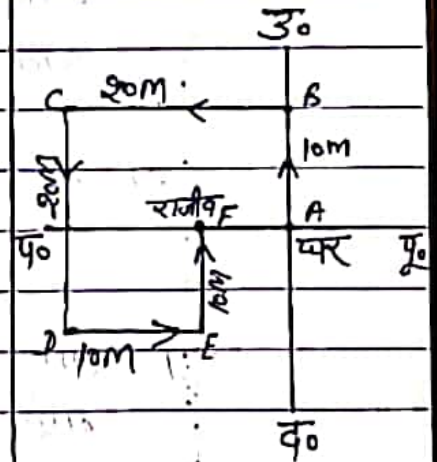 उ०
C 20m B
10m
20m
राजीव F A
प० घर पू०
10m
D 10m E
द०